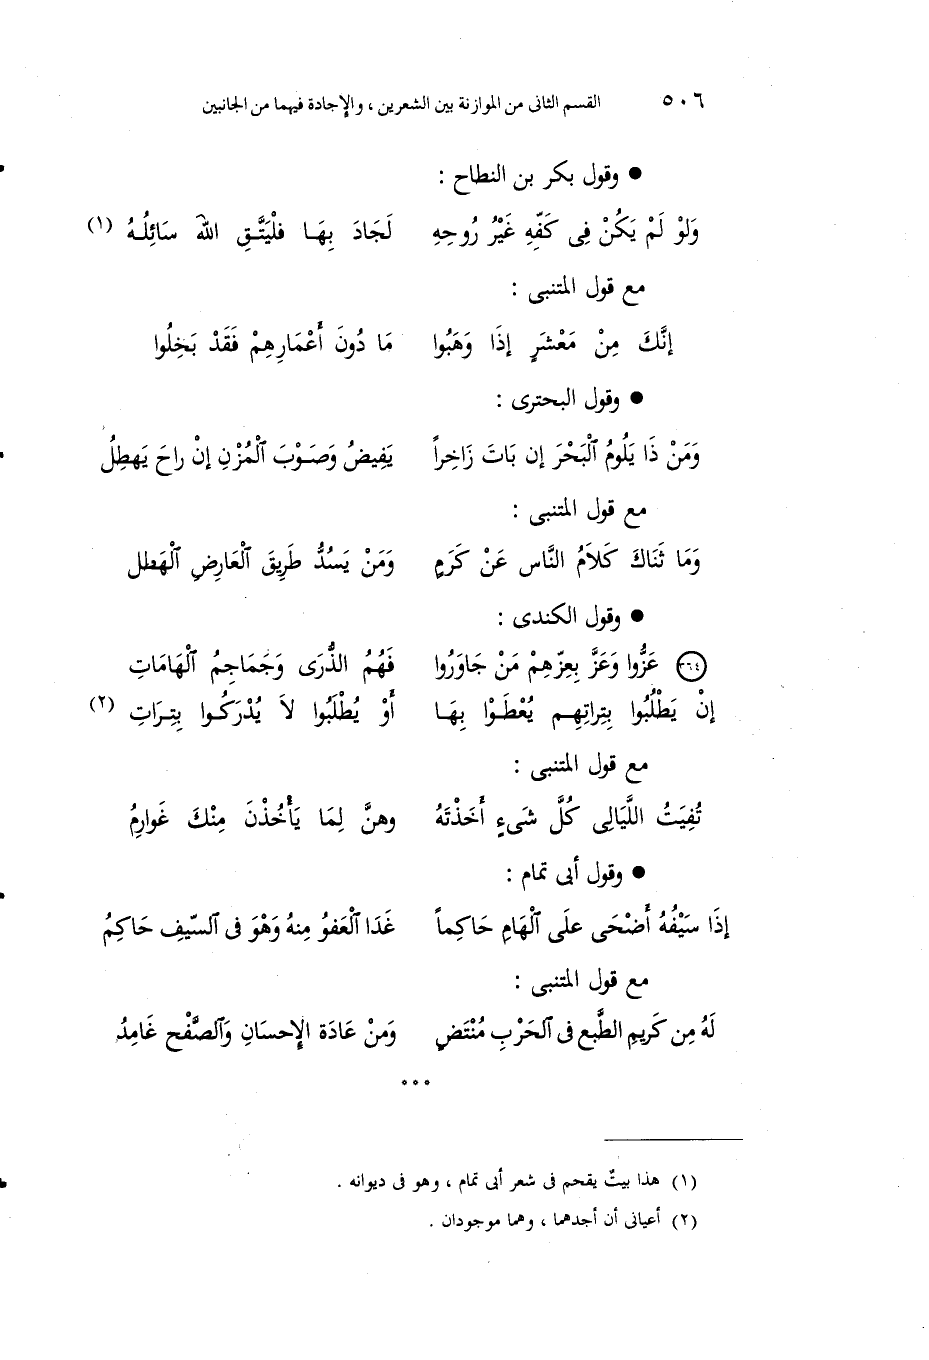 ٥٠٦ القسم الثانى من الموازنة بين الشعرين ، والإجادة فيهما من الجانبين
● وقول بكر بن النطاح :
وَلَوْ لَمْ يَكُنْ فِى كَفّهِ غَيْرُ رُوحِهِ لَجَادَ بِهَـا فلْيَتَّـقِ اللهَ سَائِلُـهُ (١)
مع قول المتنبى :
إنَّكَ مِنْ مَعْشَرٍ إذَا وَهَبُوا مَا دُونَ أَعْمَارِهِمْ فَقَدْ بَخِلُوا
● وقول البحترى :
وَمَنْ ذَا يَلُومُ ٱلْبَحْرَ إن بَاتَ زَاخِراً يَفِيضُ وَصَـوْبَ ٱلْمُزْنِ إنْ راحَ يَهطِلُ
مع قول المتنبى :
وَمَا ثَنَاكَ كَلاَمُ النَّاس عَنْ كَرَمٍ وَمَنْ يَسُدُّ طَرِيقَ ٱلْعَارِضِ ٱلْهَطل
● وقول الكندى :
٣٦٤ عَزُّوا وَعَزَّ بِعِزّهِمْ مَنْ جَاوَرُوا فَهُمُ الذُّرَى وَجَمَاجِمُ ٱلْهَامَاتِ
إنْ يَطْلُبُوا بِتِراتِهِـم يُعْطَـوْا بِهَـا أَوْ يُطْلَبُوا لاَ يُدْرَكُـوا بِتِـرَاتِ (٢)
مع قول المتنبى :
تُفِيَتُ اللَّيَالِى كُلَّ شَىءٍ أَخَذْتَهُ وهنَّ لِمَا يَأْخُذْنَ مِنْكَ غَوارِمُ
● وقول أبى تمام :
إذَا سَيْفُهُ أَضْحَى علَى ٱلْهَامِ حَاكِماً غَدَا ٱلْعَفوُ مِنهُ وَهْوَ فى ٱلسّيفِ حَاكِمُ
مع قول المتنبى :
لَهُ مِن كَريمِ الطَّبع فى ٱلحَرْبِ مُنْتَضٍ وَمنْ عَادَة الإِحسَانِ وَٱلصَّفْح غَامِدُ
∘∘∘
(١) هذا بيتٌ يقحم فى شعر أبى تمام ، وهو فى ديوانه .
(٢) أعيانى أن أجدهما ، وهما موجودان .